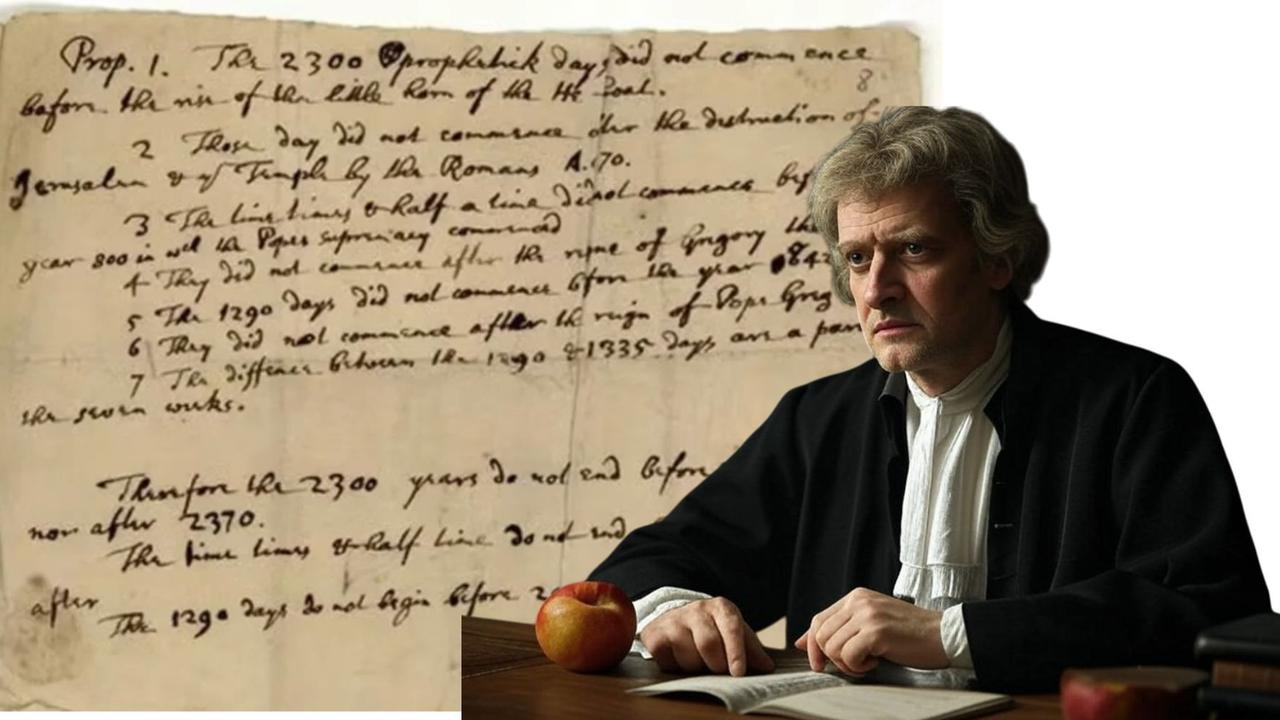 Prop. 1. The 2300 prophetick days did not commence
before the rise of the little horn of the He Goat.
8
2 Those day did not commence after the destruction of
Jerusalem & ye Temple by the Romans A. 70.
3 The time times & half a time did not commence bef
year 800 in wch the Popes supremacy commenced
4 They did not commence after the reigne of Gregory the
5 The 1290 days did not commence bfore the year 842
6 They did not commence after the reign of Pope Greg
7 The diffence between the 1290 & 1335 days are a par
the seven weeks.
Therefore the 2300 years do not end before
nor after 2370.
The time times & half time do not end
after
The 1290 days do not begin before 2